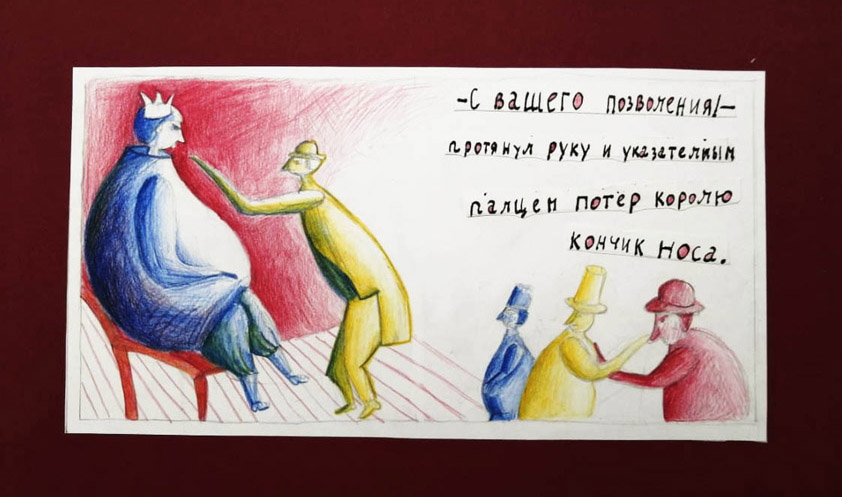 -С вашего позволения!-
протянул руку и указателным
палцем потёр королю
кончик носа.